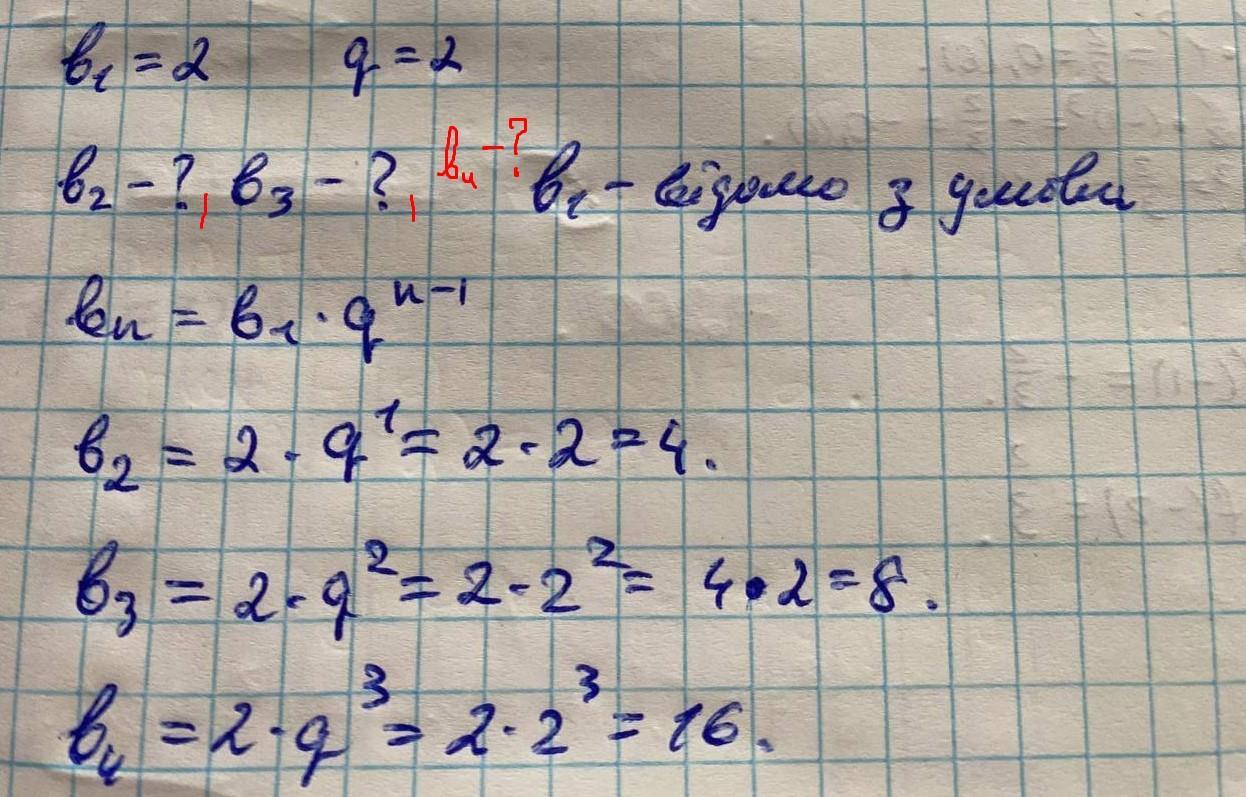 b₁ = 2 q = 2
b₂ - ?, b₃ - ?, b₄ - ? b₁ - відомо з умови
bₙ = b₁ · qⁿ⁻¹
b₂ = 2 · q¹ = 2 · 2 = 4.
b₃ = 2 · q² = 2 · 2² = 4 · 2 = 8.
b₄ = 2 · q³ = 2 · 2³ = 16.